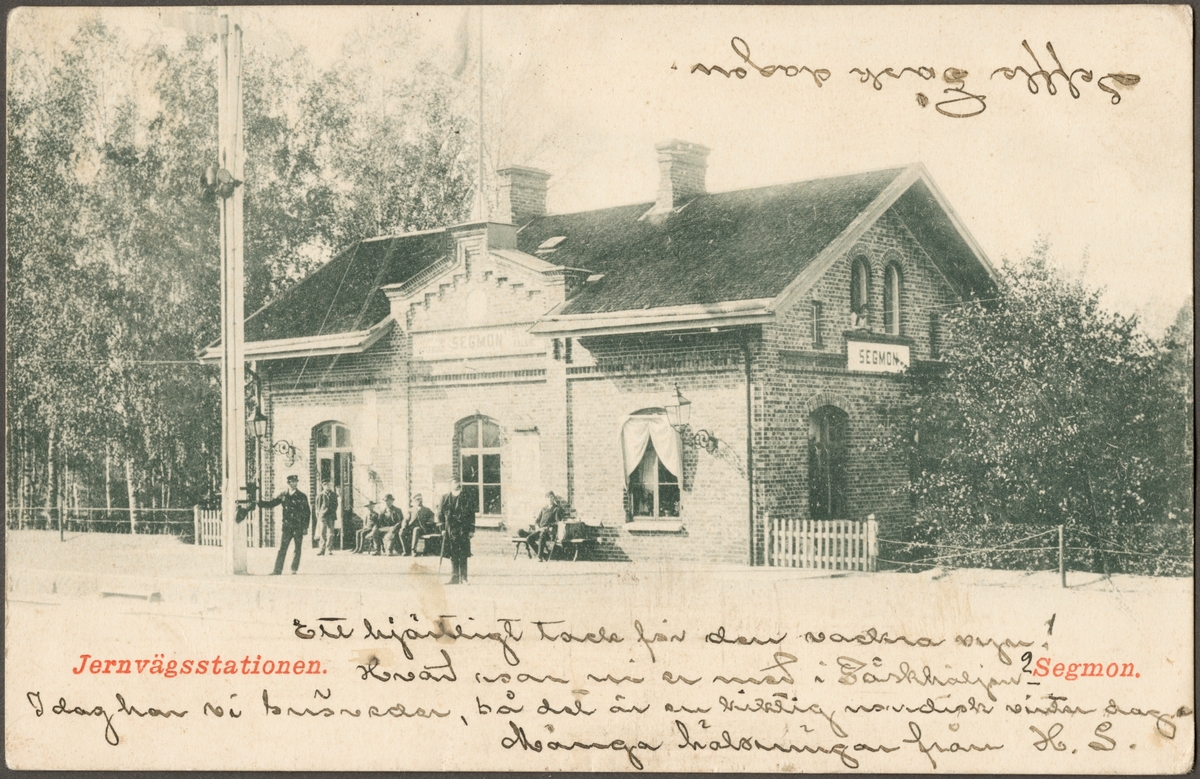 Seffle Påsk dagen.
SEGMON
SEGMON.
Ett hjärtligt tack för den vackra vyn!
Jernvägsstationen. Hvad roar ni er med i Påskhäljen? Segmon.
I dag har vi busveder, så det är en riktig nordisk vinter dag.
Många hälsningar från H. S.